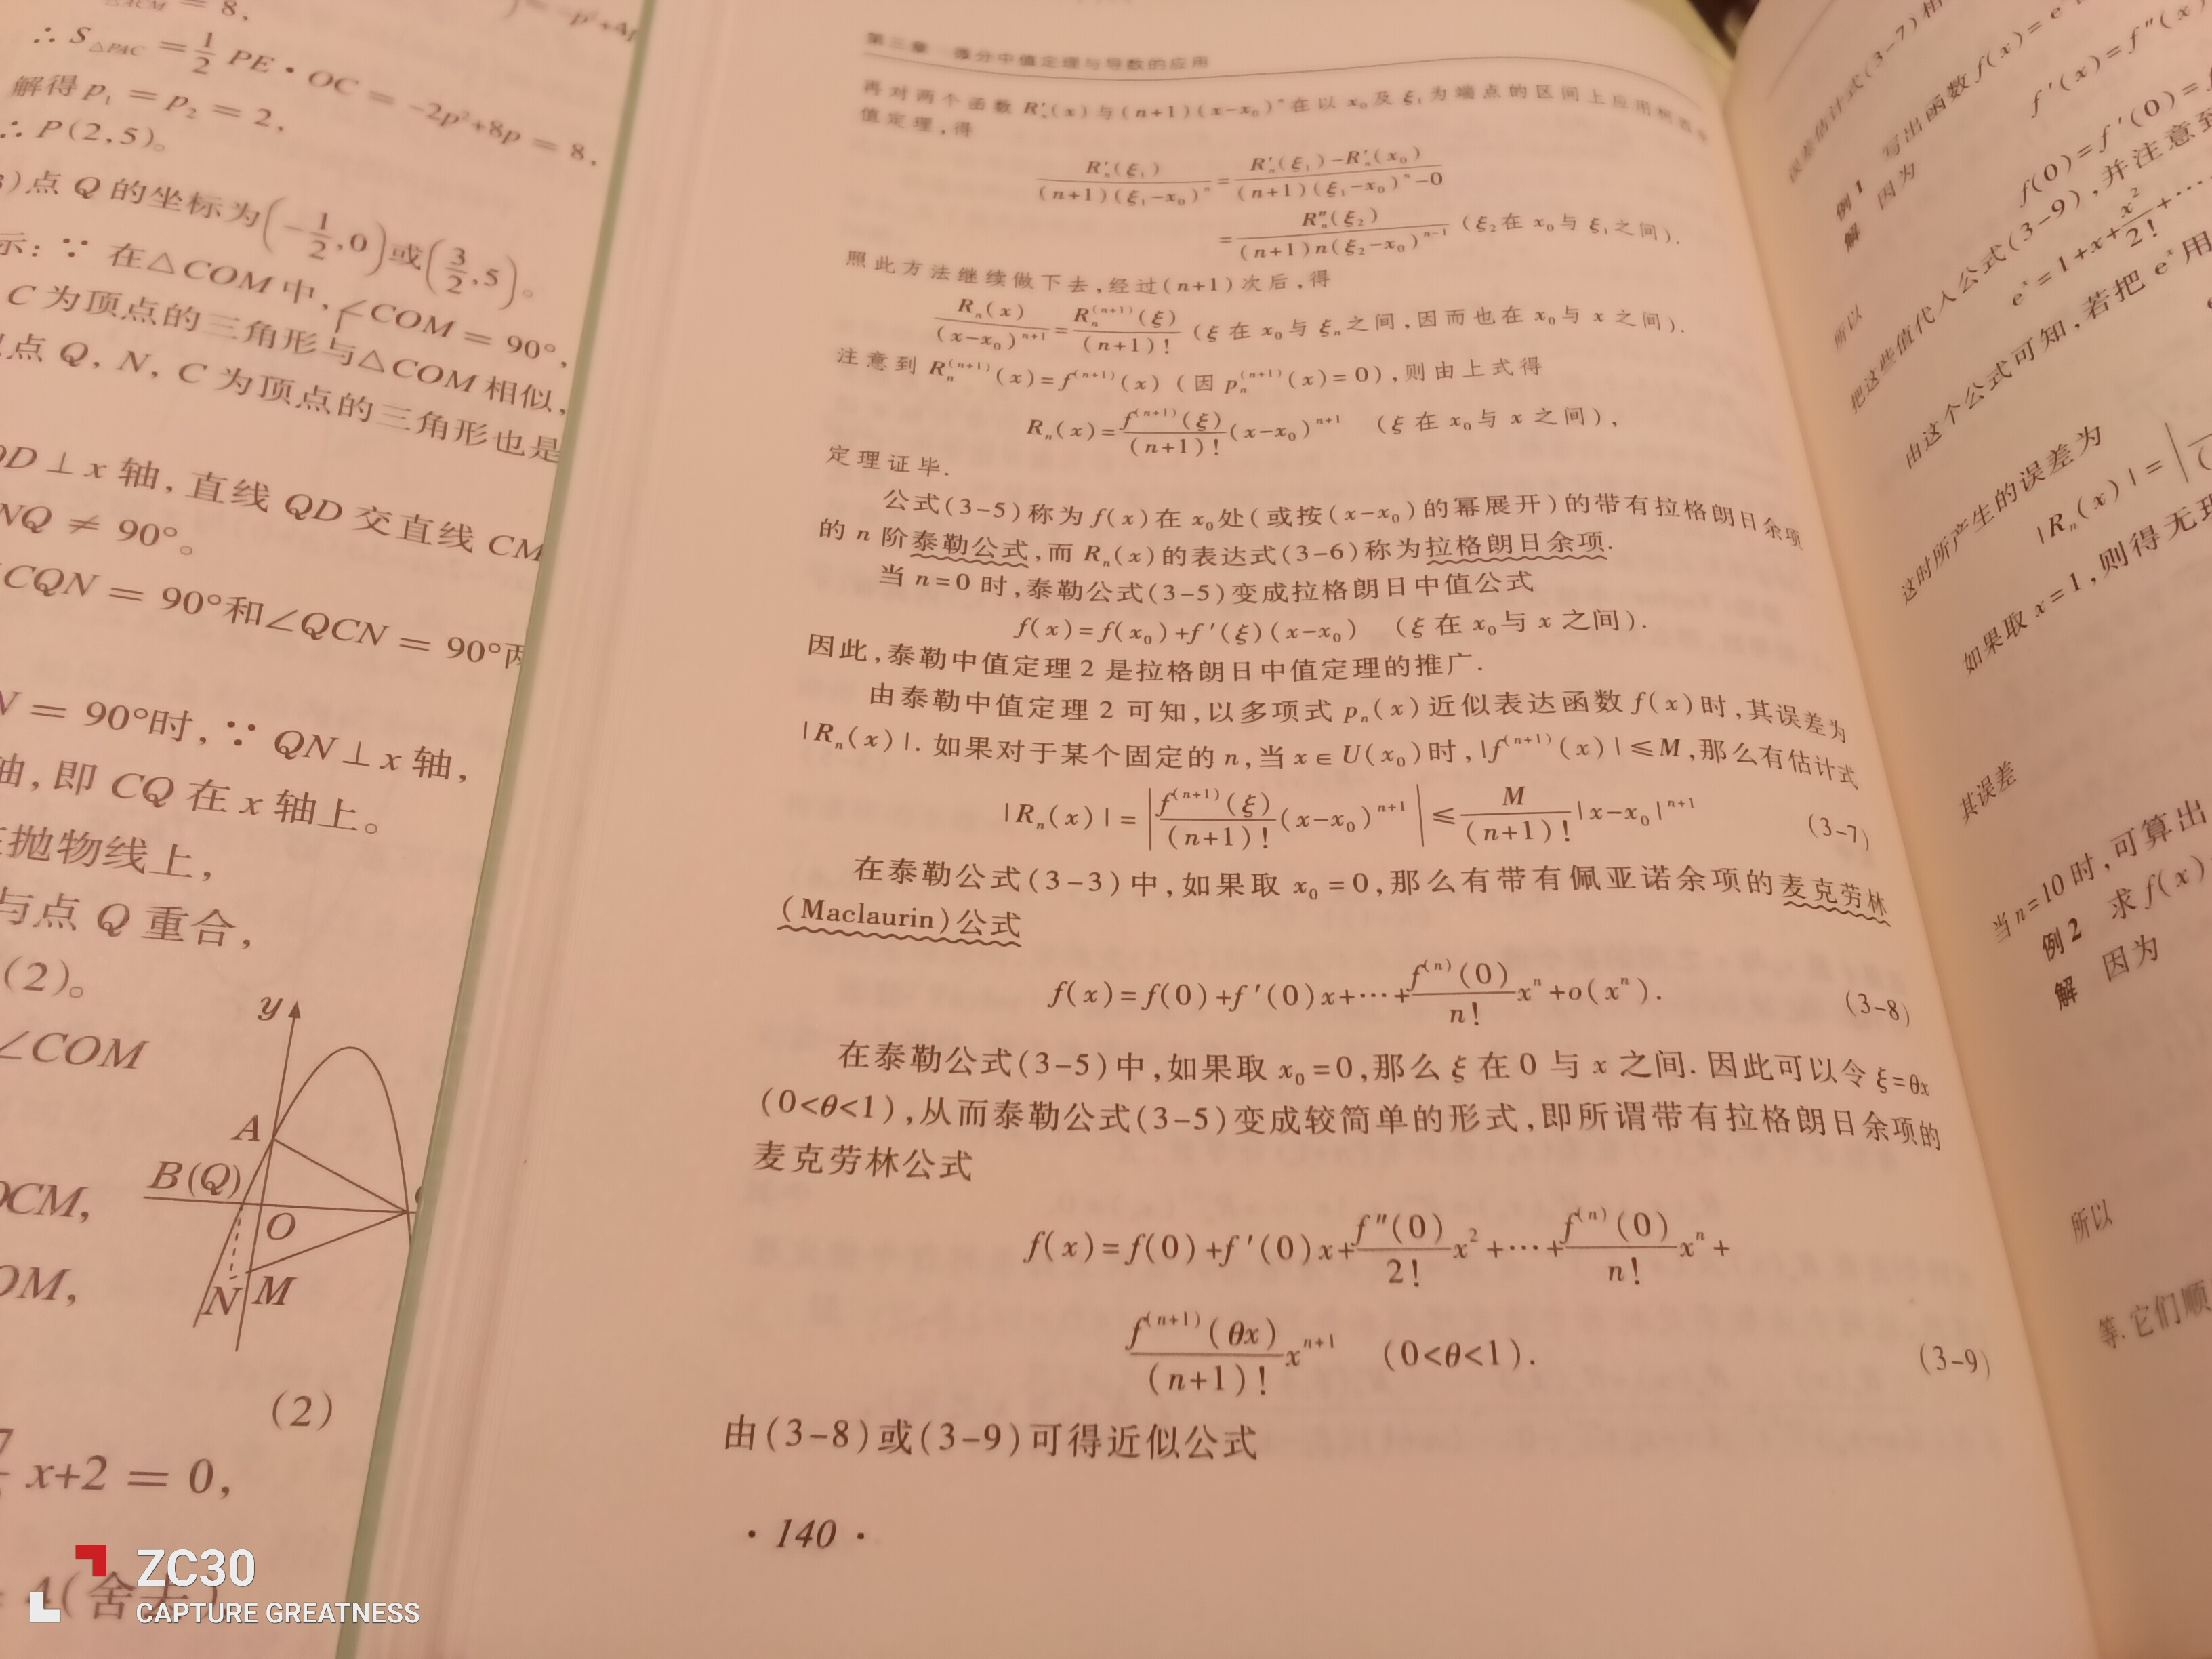 = 8,
∴ S△PAC = 1/2 PE · OC = -2p²+8p = 8,
解得 p₁ = p₂ = 2,
∴ P(2,5)。
)点 Q 的坐标为(-1/2,0)或(3/2,5)。
示: ∵ 在△COM 中,∠COM = 90°,
C 为顶点的三角形与△COM 相似,
点 Q, N, C 为顶点的三角形也是
QD⊥x 轴, 直线 QD 交直线 CM
NQ ≠ 90°。
CQN = 90°和∠QCN = 90°两
N = 90°时, ∵ QN⊥x 轴,
轴, 即 CQ 在 x 轴上。
抛物线上,
与点 Q 重合,
(2)。
∠COM
y
A
B(Q)
O
N M
CM,
OM,
(2)
x+2 = 0,
4(舍去)
第三章 微分中值定理与导数的应用
再对两个函数 R′ₙ(x)与(n+1)(x-x₀)ⁿ在以 x₀及 ξ₁为端点的区间上应用柯西中
值定理,得
R′ₙ(ξ₁)/((n+1)(ξ₁-x₀)ⁿ) = (R′ₙ(ξ₁)-R′ₙ(x₀))/((n+1)(ξ₁-x₀)ⁿ-0)
= R″ₙ(ξ₂)/((n+1)n(ξ₂-x₀)ⁿ⁻¹) (ξ₂在 x₀与 ξ₁之间).
照此方法继续做下去,经过(n+1)次后,得
Rₙ(x)/(x-x₀)ⁿ⁺¹ = Rₙ⁽ⁿ⁺¹⁾(ξ)/(n+1)! (ξ 在 x₀与 ξₙ之间,因而也在 x₀与 x 之间).
注意到 Rₙ⁽ⁿ⁺¹⁾(x)=f⁽ⁿ⁺¹⁾(x) (因 pₙ⁽ⁿ⁺¹⁾(x)=0),则由上式得
Rₙ(x)=f⁽ⁿ⁺¹⁾(ξ)/(n+1)! (x-x₀)ⁿ⁺¹ (ξ 在 x₀与 x 之间),
定理证毕.
公式(3-5)称为 f(x)在 x₀处(或按(x-x₀)的幂展开)的带有拉格朗日余项
的 n 阶泰勒公式,而 Rₙ(x)的表达式(3-6)称为拉格朗日余项.
当 n=0 时,泰勒公式(3-5)变成拉格朗日中值公式
f(x)=f(x₀)+f′(ξ)(x-x₀) (ξ 在 x₀与 x 之间).
因此,泰勒中值定理 2 是拉格朗日中值定理的推广.
由泰勒中值定理 2 可知,以多项式 pₙ(x)近似表达函数 f(x)时,其误差为
|Rₙ(x)|. 如果对于某个固定的 n,当 x∈U(x₀)时,|f⁽ⁿ⁺¹⁾(x)|≤M,那么有估计式
|Rₙ(x)|=|f⁽ⁿ⁺¹⁾(ξ)/(n+1)! (x-x₀)ⁿ⁺¹|≤M/(n+1)! |x-x₀|ⁿ⁺¹ (3-7)
在泰勒公式(3-3)中,如果取 x₀=0,那么有带有佩亚诺余项的麦克劳林
(Maclaurin)公式
f(x)=f(0)+f′(0)x+⋯+f⁽ⁿ⁾(0)/n! xⁿ+o(xⁿ). (3-8)
在泰勒公式(3-5)中,如果取 x₀=0,那么 ξ 在 0 与 x 之间. 因此可以令 ξ=θx
(0<θ<1),从而泰勒公式(3-5)变成较简单的形式,即所谓带有拉格朗日余项的
麦克劳林公式
f(x)=f(0)+f′(0)x+f″(0)/2! x²+⋯+f⁽ⁿ⁾(0)/n! xⁿ+
f⁽ⁿ⁺¹⁾(θx)/(n+1)! xⁿ⁺¹ (0<θ<1). (3-9)
由(3-8)或(3-9)可得近似公式
· 140 ·
误差估计式(3-7)相
例 1 写出函数 f(x)=eˣ
解 因为
f′(x)=f″(x)
f(0)=f′(0)=
所以
把这些值代入公式(3-9),并注意到
eˣ=1+x+x²/2!+⋯
由这个公式可知,若把 eˣ用
这时所产生的误差为
|Rₙ(x)|=
如果取 x=1,则得无理
其误差
当 n=10 时,可算出
例 2 求 f(x)
解 因为
所以
等.它们顺
ZC30
CAPTURE GREATNESS